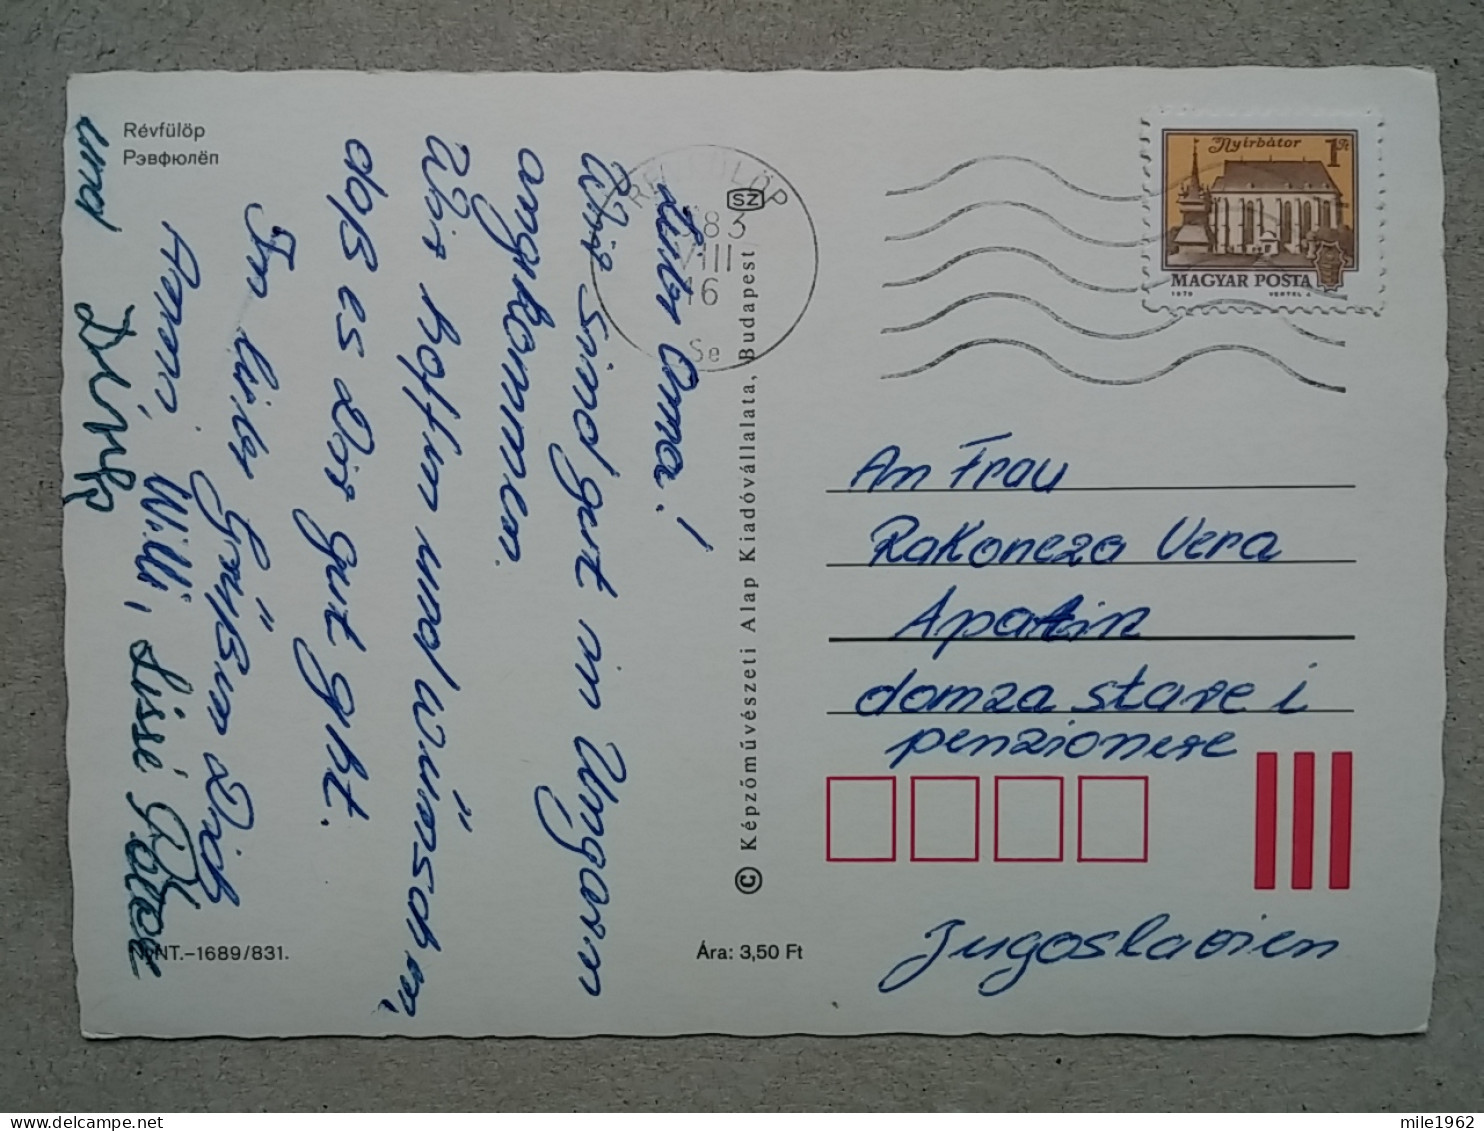 Révfülöp
Рэвфюлёп
Liebe Oma!
Wir sind gut in Ungarn
angekommen.
Wir hoffen und wünschen,
daß es Dir gut geht.
In liebe Grüßen Dich
Anni Willi, Sissi
und
RÉVFÜLÖP
SZ
83
VIII
16
Nyírbátor
1 Ft
MAGYAR POSTA
1979
VERTEL J.
© Képzőművészeti Alap Kiadóvállalata, Budapest
An Frau
Rakoncza Vera
Apatin
domza stare i
penzionere
Jugoslavien
NYNT.–1689/831.
Ára: 3,50 Ft
mile1962